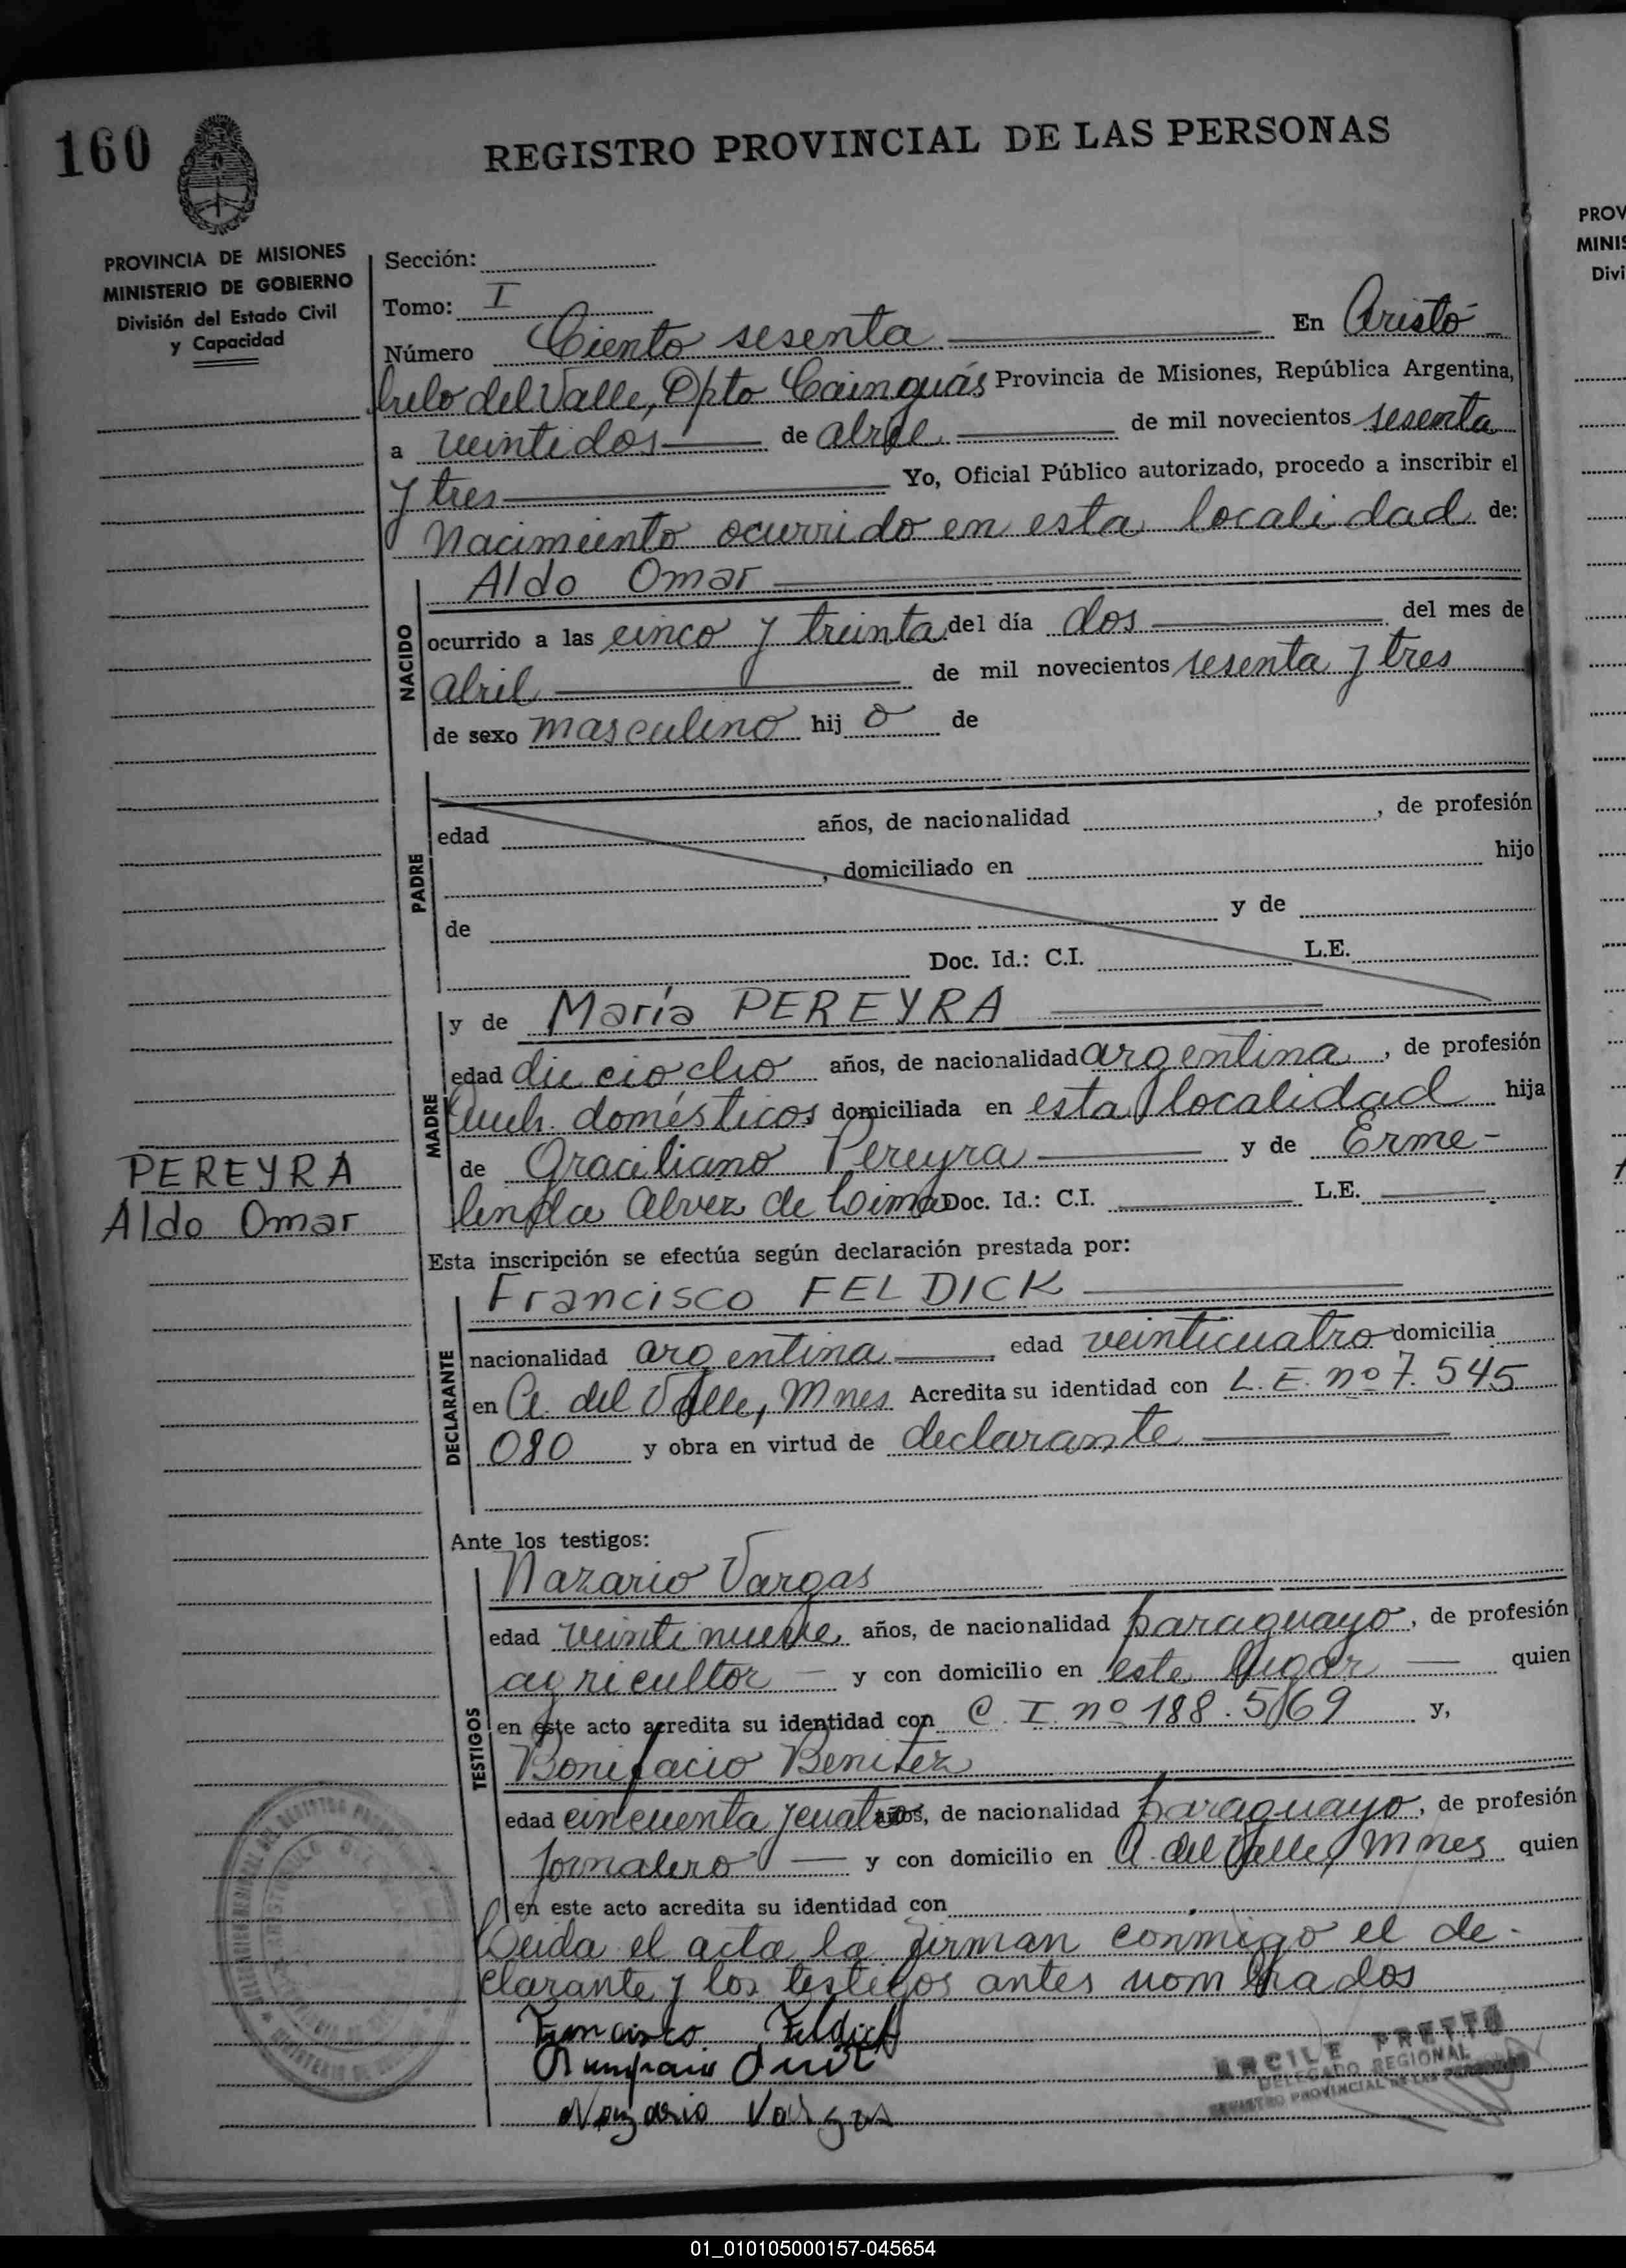 160
REGISTRO PROVINCIAL DE LAS PERSONAS
PROVINCIA DE MISIONES
MINISTERIO DE GOBIERNO
División del Estado Civil
y Capacidad
Sección:
Tomo: I
Número Ciento sesenta En Aristó
bulo del Valle, Dpto Cainguás Provincia de Misiones, República Argentina,
a veintidos de abril de mil novecientos sesenta
y tres Yo, Oficial Público autorizado, procedo a inscribir el
Nacimiento ocurrido en esta localidad de:
NACIDO
Aldo Omar
ocurrido a las cinco y treinta del día dos del mes de
abril de mil novecientos sesenta y tres
de sexo masculino hij o de
PADRE
edad años, de nacionalidad , de profesión
, domiciliado en hijo
de y de
Doc. Id.: C.I. L.E.
MADRE
y de María PEREYRA
edad dieciocho años, de nacionalidad argentina, de profesión
Queh. domésticos domiciliada en esta localidad hija
de Graciliano Pereyra y de Erme-
linda Alvez de Lima Doc. Id.: C.I. L.E.
PEREYRA
Aldo Omar
Esta inscripción se efectúa según declaración prestada por:
DECLARANTE
Francisco FELDICK
nacionalidad argentina edad veinticuatro domicilia
en A. del Valle, Mnes Acredita su identidad con L.E. nº 7.545
080 y obra en virtud de declarante
Ante los testigos:
TESTIGOS
Nazario Vargas
edad veintinueve años, de nacionalidad paraguayo, de profesión
agricultor y con domicilio en este lugar quien
en este acto acredita su identidad con C.I. nº 188.569 y,
Bonifacio Benitez
edad cincuenta y cuatro años, de nacionalidad paraguayo, de profesión
jornalero y con domicilio en A. del Valle, Mnes quien
en este acto acredita su identidad con
Leida el acta la firman conmigo el de-
clarante y los testigos antes nombrados
Francisco Feldick
Nazario Vargas
ARCILE PRETTO
DELEGADO REGIONAL
REGISTRO PROVINCIAL DE LAS PERSONAS
PROV
MINIS
Divi
01_010105000157-045654